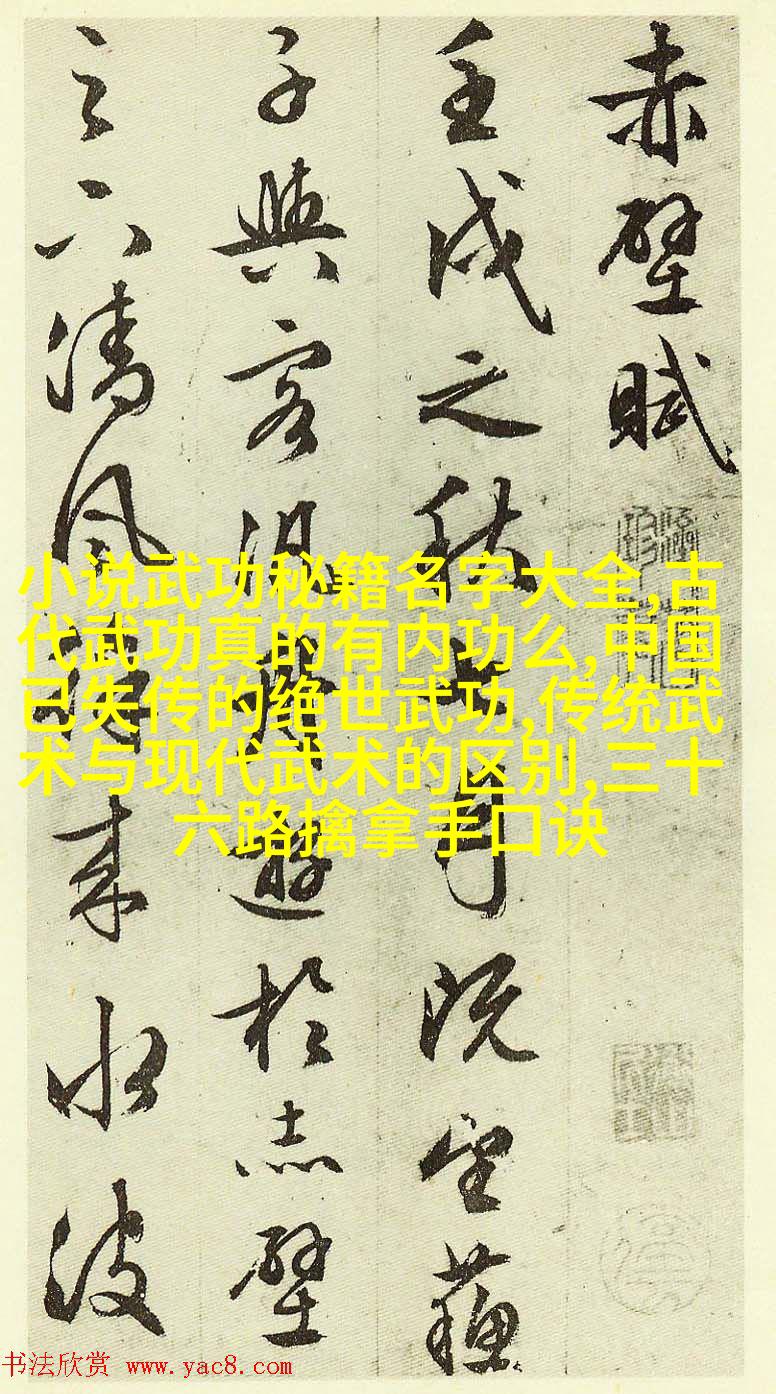 赤壁賦
壬戌之秋七月既望蘇
子與客泛舟遊於赤壁
之下清風徐來水波
小说武功秘籍名字大全,古
代武功真的有内功么,中国
已失传的绝世武功,传统武
术与现代武术的区别,三十
六路擒拿手口诀
书法欣赏 www.yac8.com